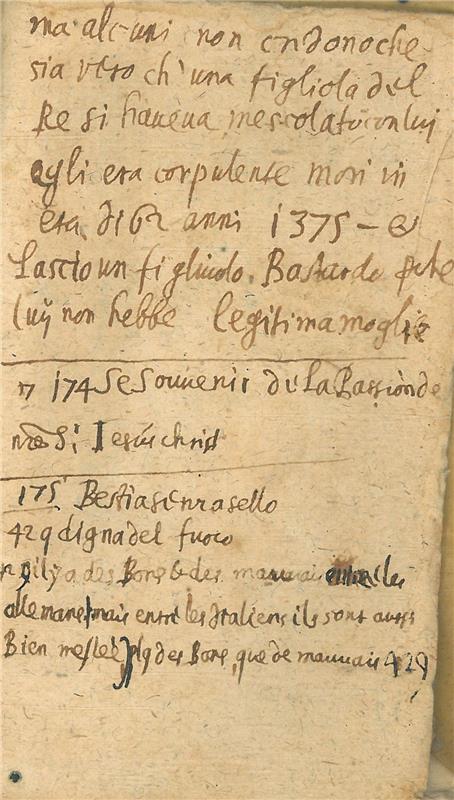 ma alcuni non credono che
sia vero ch'una figliola del
Re si haveva mescolato con lui
egli era corpulente mori in
eta di 62 anni 1375 - e
Lascio un figliuolo. Bastardo
luij non hebbe legitima moglie
174 se souvenir de La Passion de
nre Sr Iesus christ
175 Bestia senza sello
429 digna del fuoco
il y a des Bons & des mauvais entre les
allemans mais entre les Italiens ils sont aussi
Bien mesleè plq des Bons, que de mauvais 429